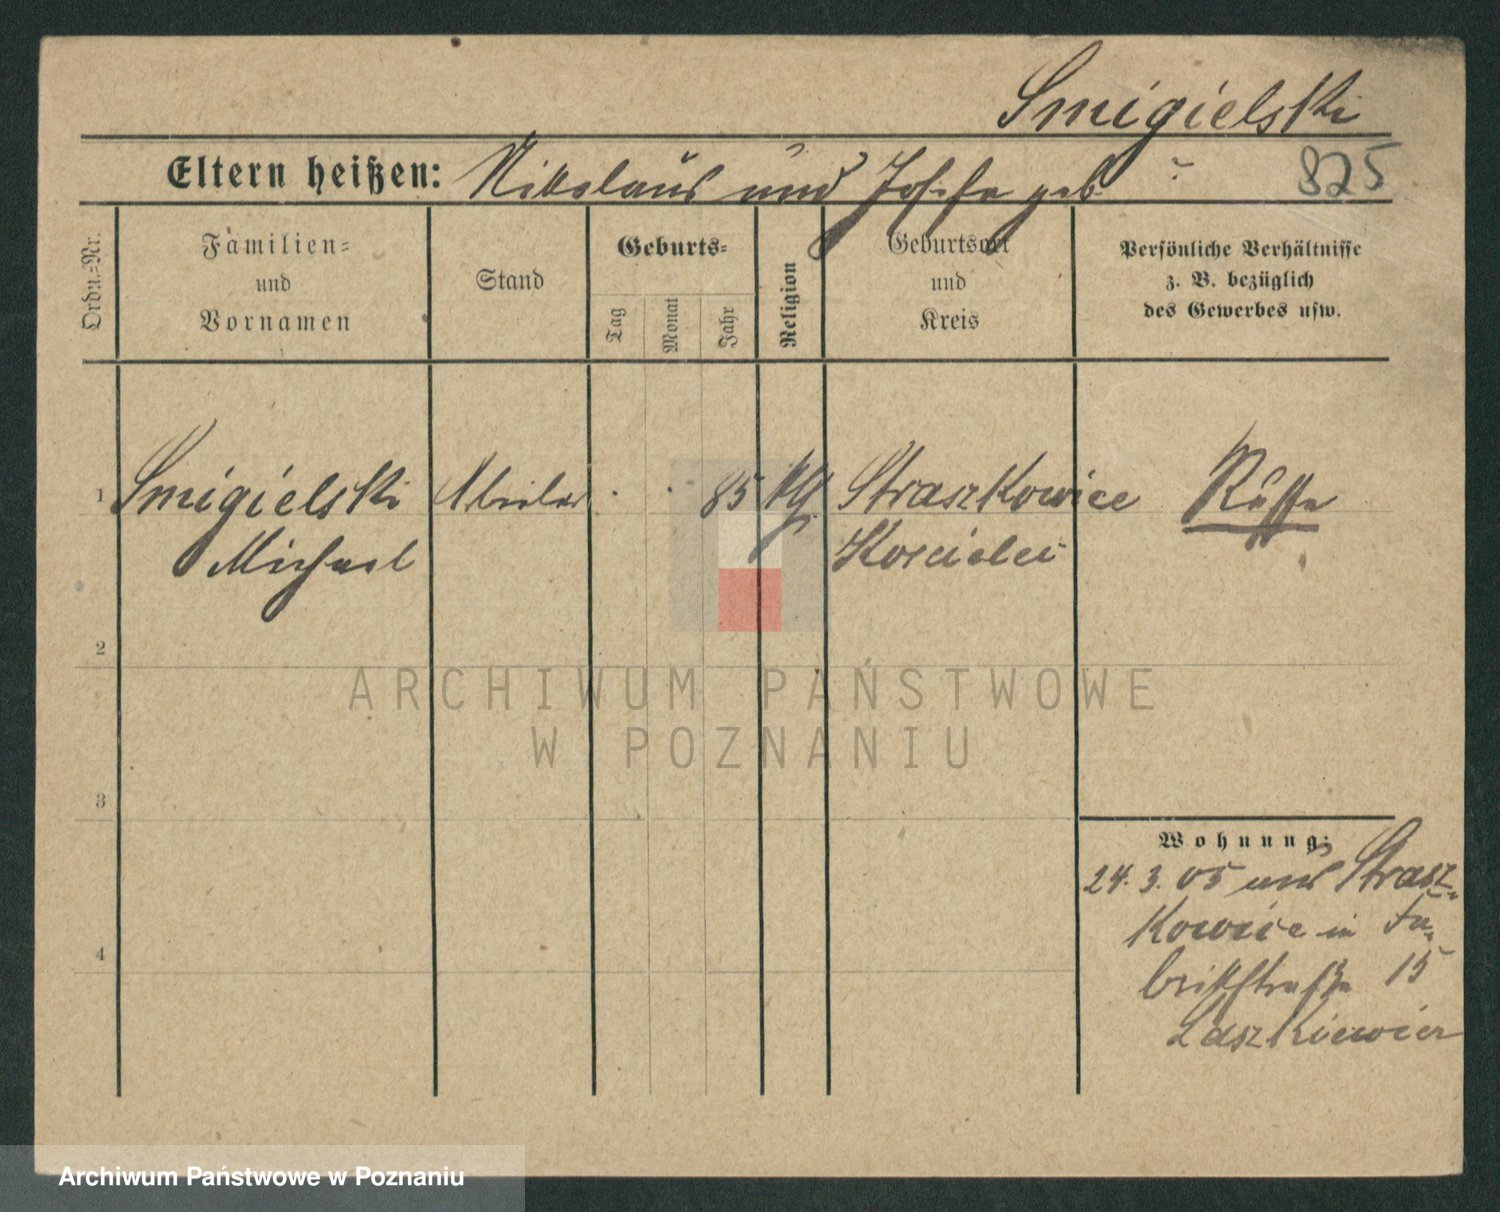 Smigielski
Eltern heißen: Nikolaus und Josefa geb ?
825
Ordn.=Nr.
Familien=
und
Vornamen
Stand
Geburts=
Tag
Monat
Jahr
Religion
Geburtsort
und
Kreis
Persönliche Verhältnisse
z. B. bezüglich
des Gewerbes usw.
1 Smigielski 85 Straszkowice Russe
Michael
2
ARCHIWUM PAŃSTWOWE
W POZNANIU
3
Wohnung:
24. 3. 05 aus Strasz-
kowice in Fa-
4
brikstraße 15
Laszkiewicz
Archiwum Państwowe w Poznaniu